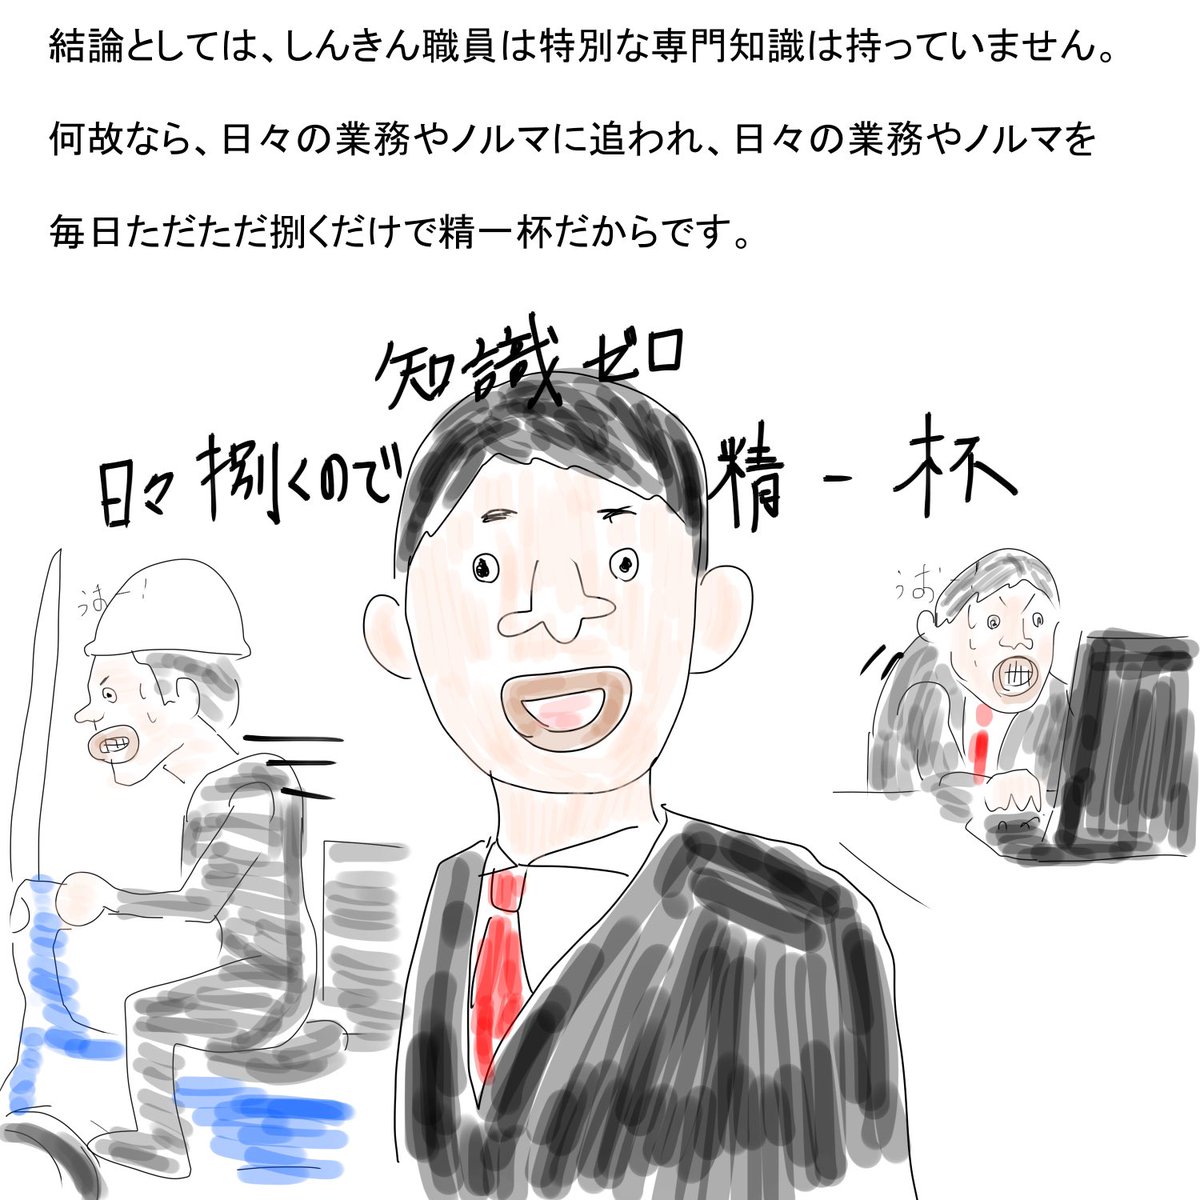 結論としては、しんきん職員は特別な専門知識は持っていません。
何故なら、日々の業務やノルマに追われ、日々の業務やノルマを
毎日ただただ捌くだけで精一杯だからです。
知識ゼロ
日々捌くので精一杯
うおー
うおー